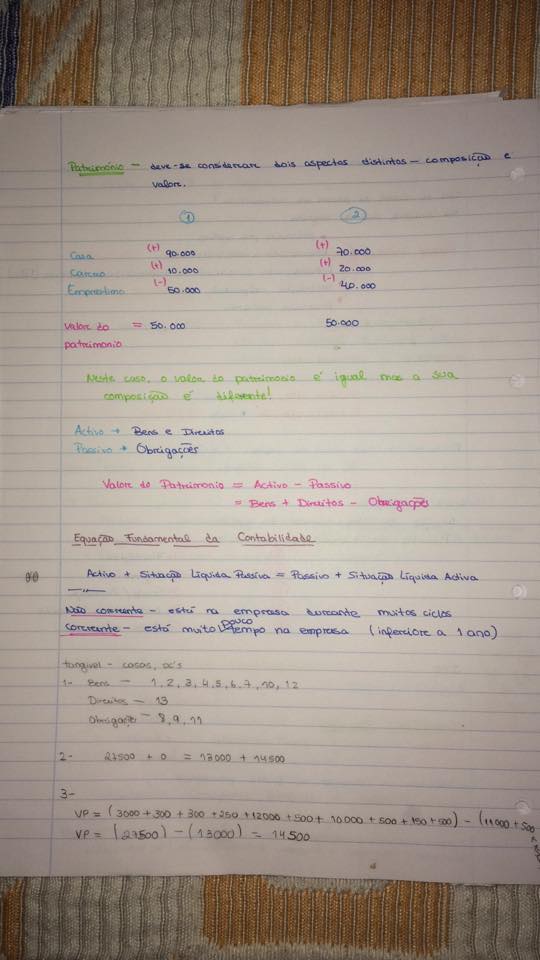 Património - deve-se considerar dois aspectos distintos - composição e
valor.
① ②
Casa (+) 90.000 (+) 70.000
Carro (+) 10.000 (+) 20.000
Empréstimo (-) 50.000 (-) 40.000
Valor do = 50.000 50.000
patrimonio
Neste caso, o valor do patrimonio é igual mas a sua
composição é diferente!
Activo → Bens e Direitos
Passivo → Obrigações
Valor do Patrimonio = Activo - Passivo
= Bens + Direitos - Obrigações
Equação Fundamental da Contabilidade
Activo + Situação Líquida Passiva = Passivo + Situação Líquida Activa
Não corrente - está na empresa durante muitos ciclos
corrente - está muito pouco tempo na empresa (inferior a 1 ano)
tangível - casas, pc's
1- Bens - 1, 2, 3, 4, 5, 6, 7, 10, 12
Direitos - 13
Obrigação - 8, 9, 11
2- 27500 + 0 = 13000 + 14500
3-
VP = (3000 + 300 + 300 + 250 + 12000 + 500 + 10000 + 500 + 150 + 500) - (11000 + 500
VP = (27500) - (13000) = 14500